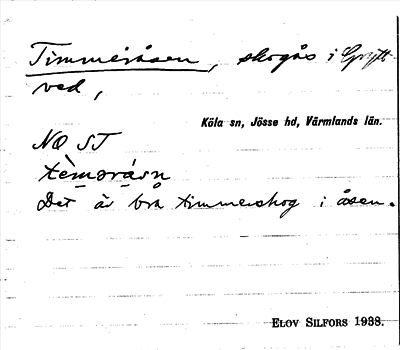 Timmeråsen, skogås i Gryft
ved,
Köla sn, Jösse hd, Värmlands län.
NO ST
tèmәrásn
Det är bra timmerskog i åsen.
ELOV SILFORS 1938.